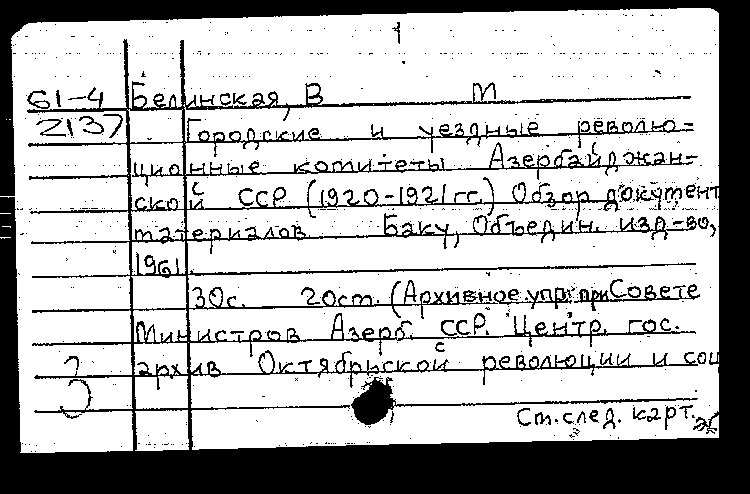 1
61-4 Белинская, В М
2137 Городские и уездные револю=
ционные комитеты Азербайджан=
ской ССР (1920-1921 гг.) Обзор документ
материалов Баку, Объедин. изд-во,
1961.
30с. 20см. (Архивное упр. при Совете
Министров Азерб. ССР. Центр. гос.
3 архив Октябрьской революции и соц
См. след. карт.